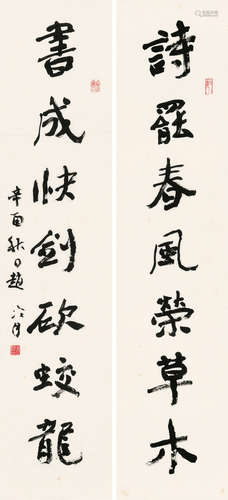 詩罷春風榮草木
書成快劍斫蛟龍
辛酉秋日趙冷月